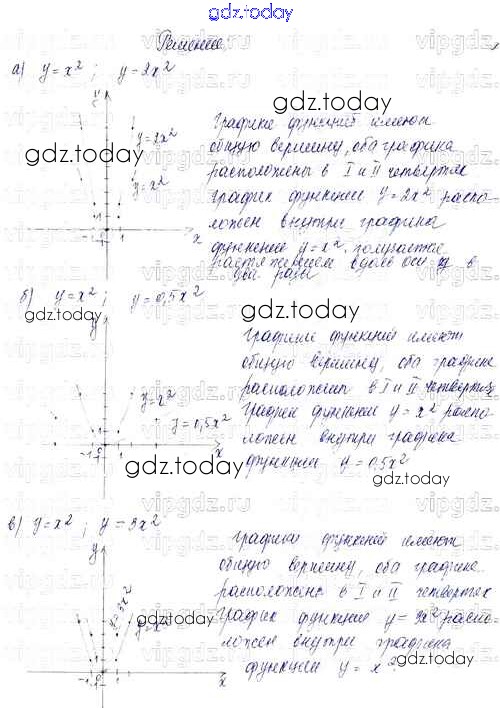 gdz.today
Решение
а) y = x² ; y = 2x²
gdz.today
y
y = 2x²
y = x²
-1 0 1
x
Графики функций имеют
общую вершину, оба графика
расположены в I и II четвертях
График функции y = 2x² распо-
ложен внутри графика
функции y = x², получается
растяжением вдоль оси y в
два раза
gdz.today
б) y = x² ; y = 0,5x²
gdz.today
gdz.today
y
y = x²
y = 0,5x²
-1 0 1
x
Графики функций имеют
общую вершину, оба графика
расположены в I и II четвертях
График функции y = x² распо-
ложен внутри графика
функции y = 0,5x²
gdz.today
gdz.today
в) y = x² ; y = 3x²
y
y = 3x²
y = x²
-1 0 1
x
Графики функций имеют
общую вершину, оба графика
расположены в I и II четвертях
График функции y = 3x² распо-
ложен внутри графика
функции y = x².
gdz.today
gdz.today